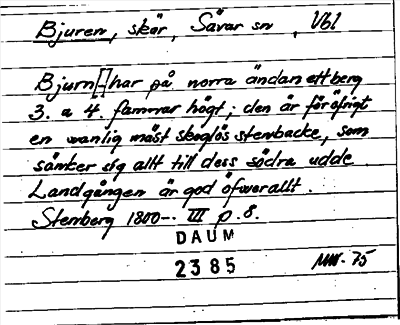 Bjuren, skär, Sävar sn, Vbl
Bjurn[] har på norra ändan ett berg
3. a 4. famnar högt; den är för öfrigt
en vanlig mäst skoglös stenbacke, som
sänker sig allt till dess södra udde.
Landgången är god öfwerallt.
Stenberg 1800-. III p. 8.
DAUM
2385
-75